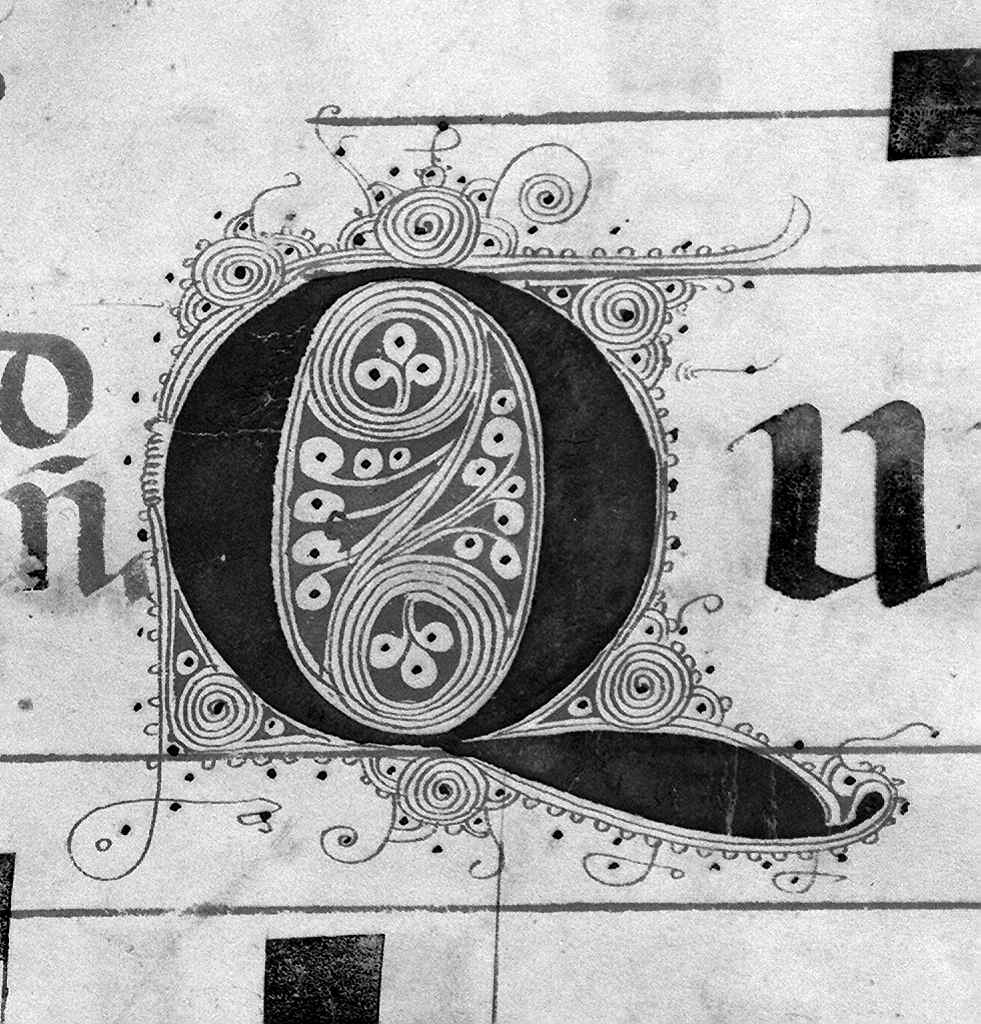 o
ñ Qu